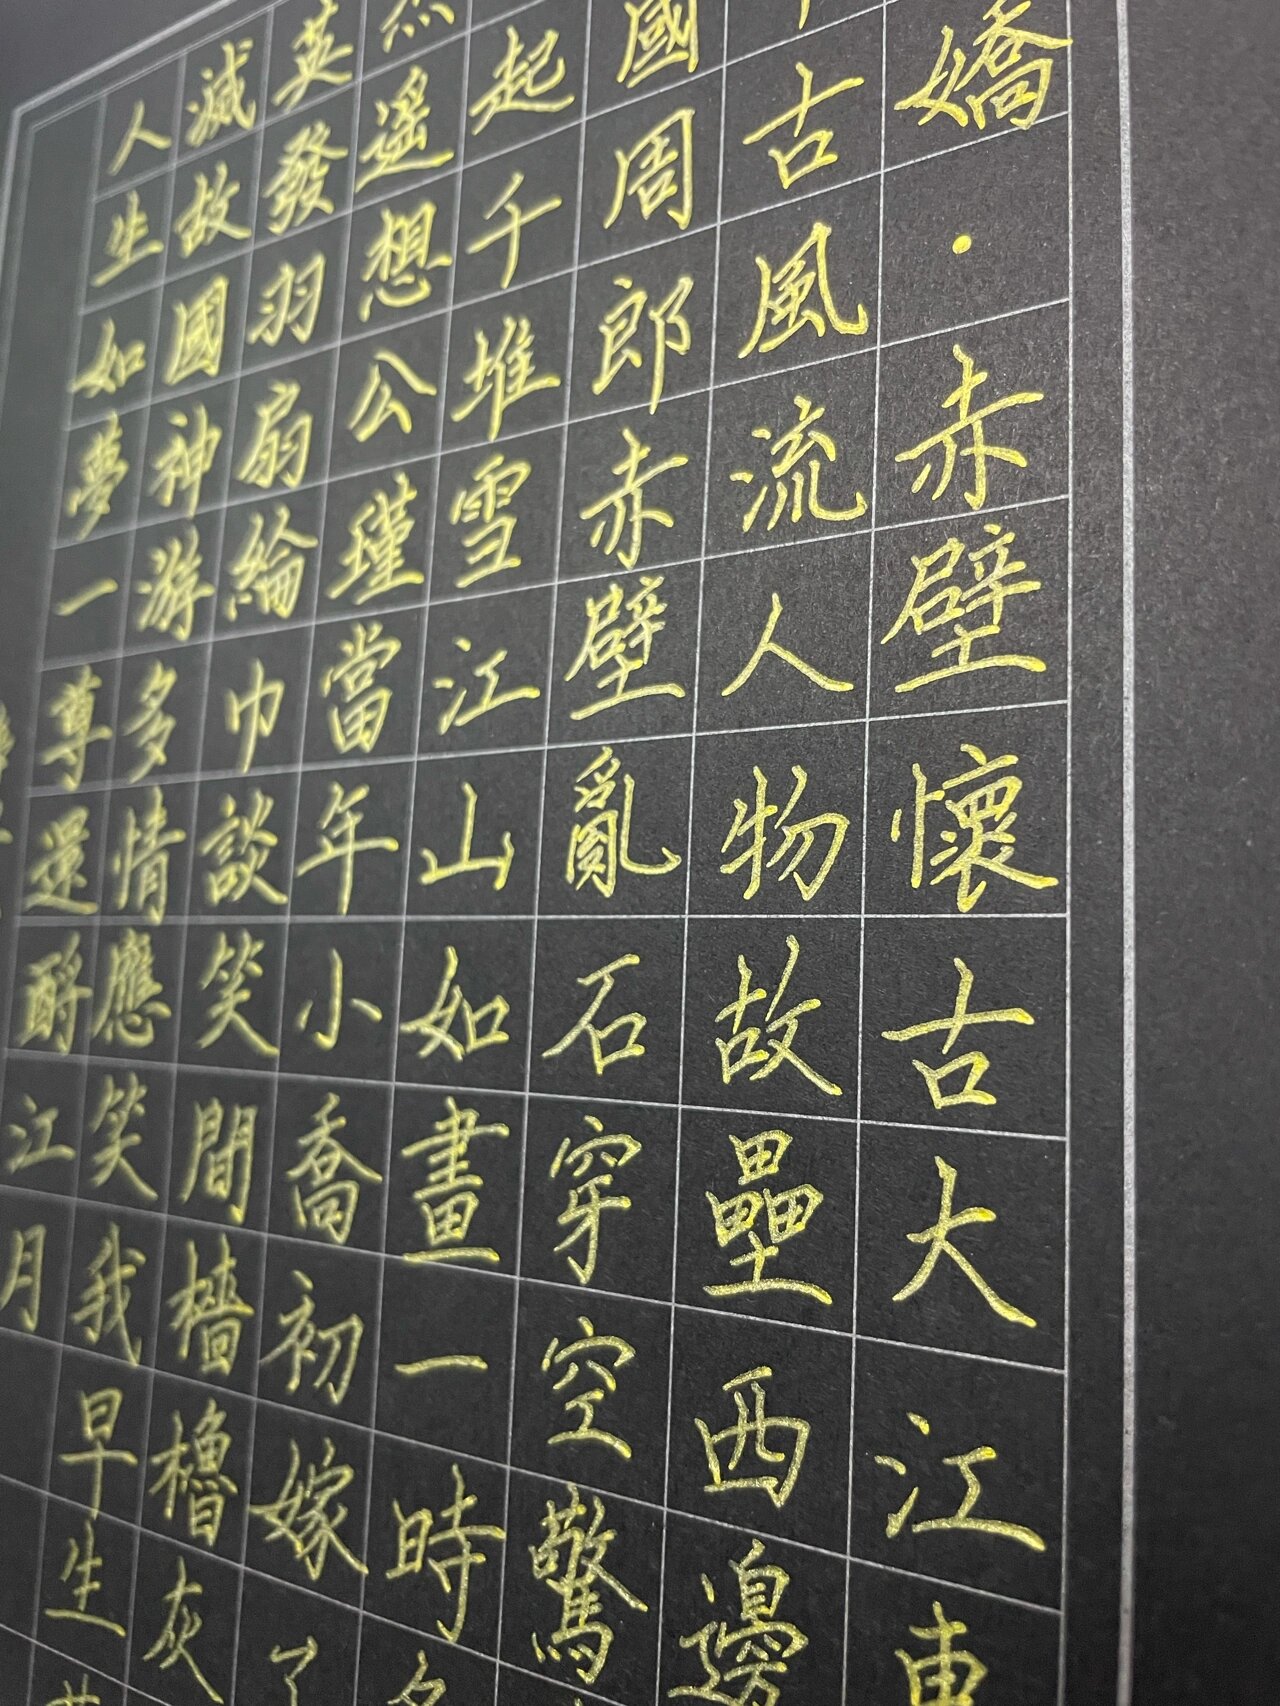 嬌·赤壁懷古大江東
古風流人物故壘西邊
國周郎赤壁亂石穿空驚
起千堆雪江山如畫一時多
遙想公瑾當年小喬初嫁了
英發羽扇綸巾談笑間檣櫓灰
滅故國神游多情應笑我早生
人生如夢一尊還酹江月